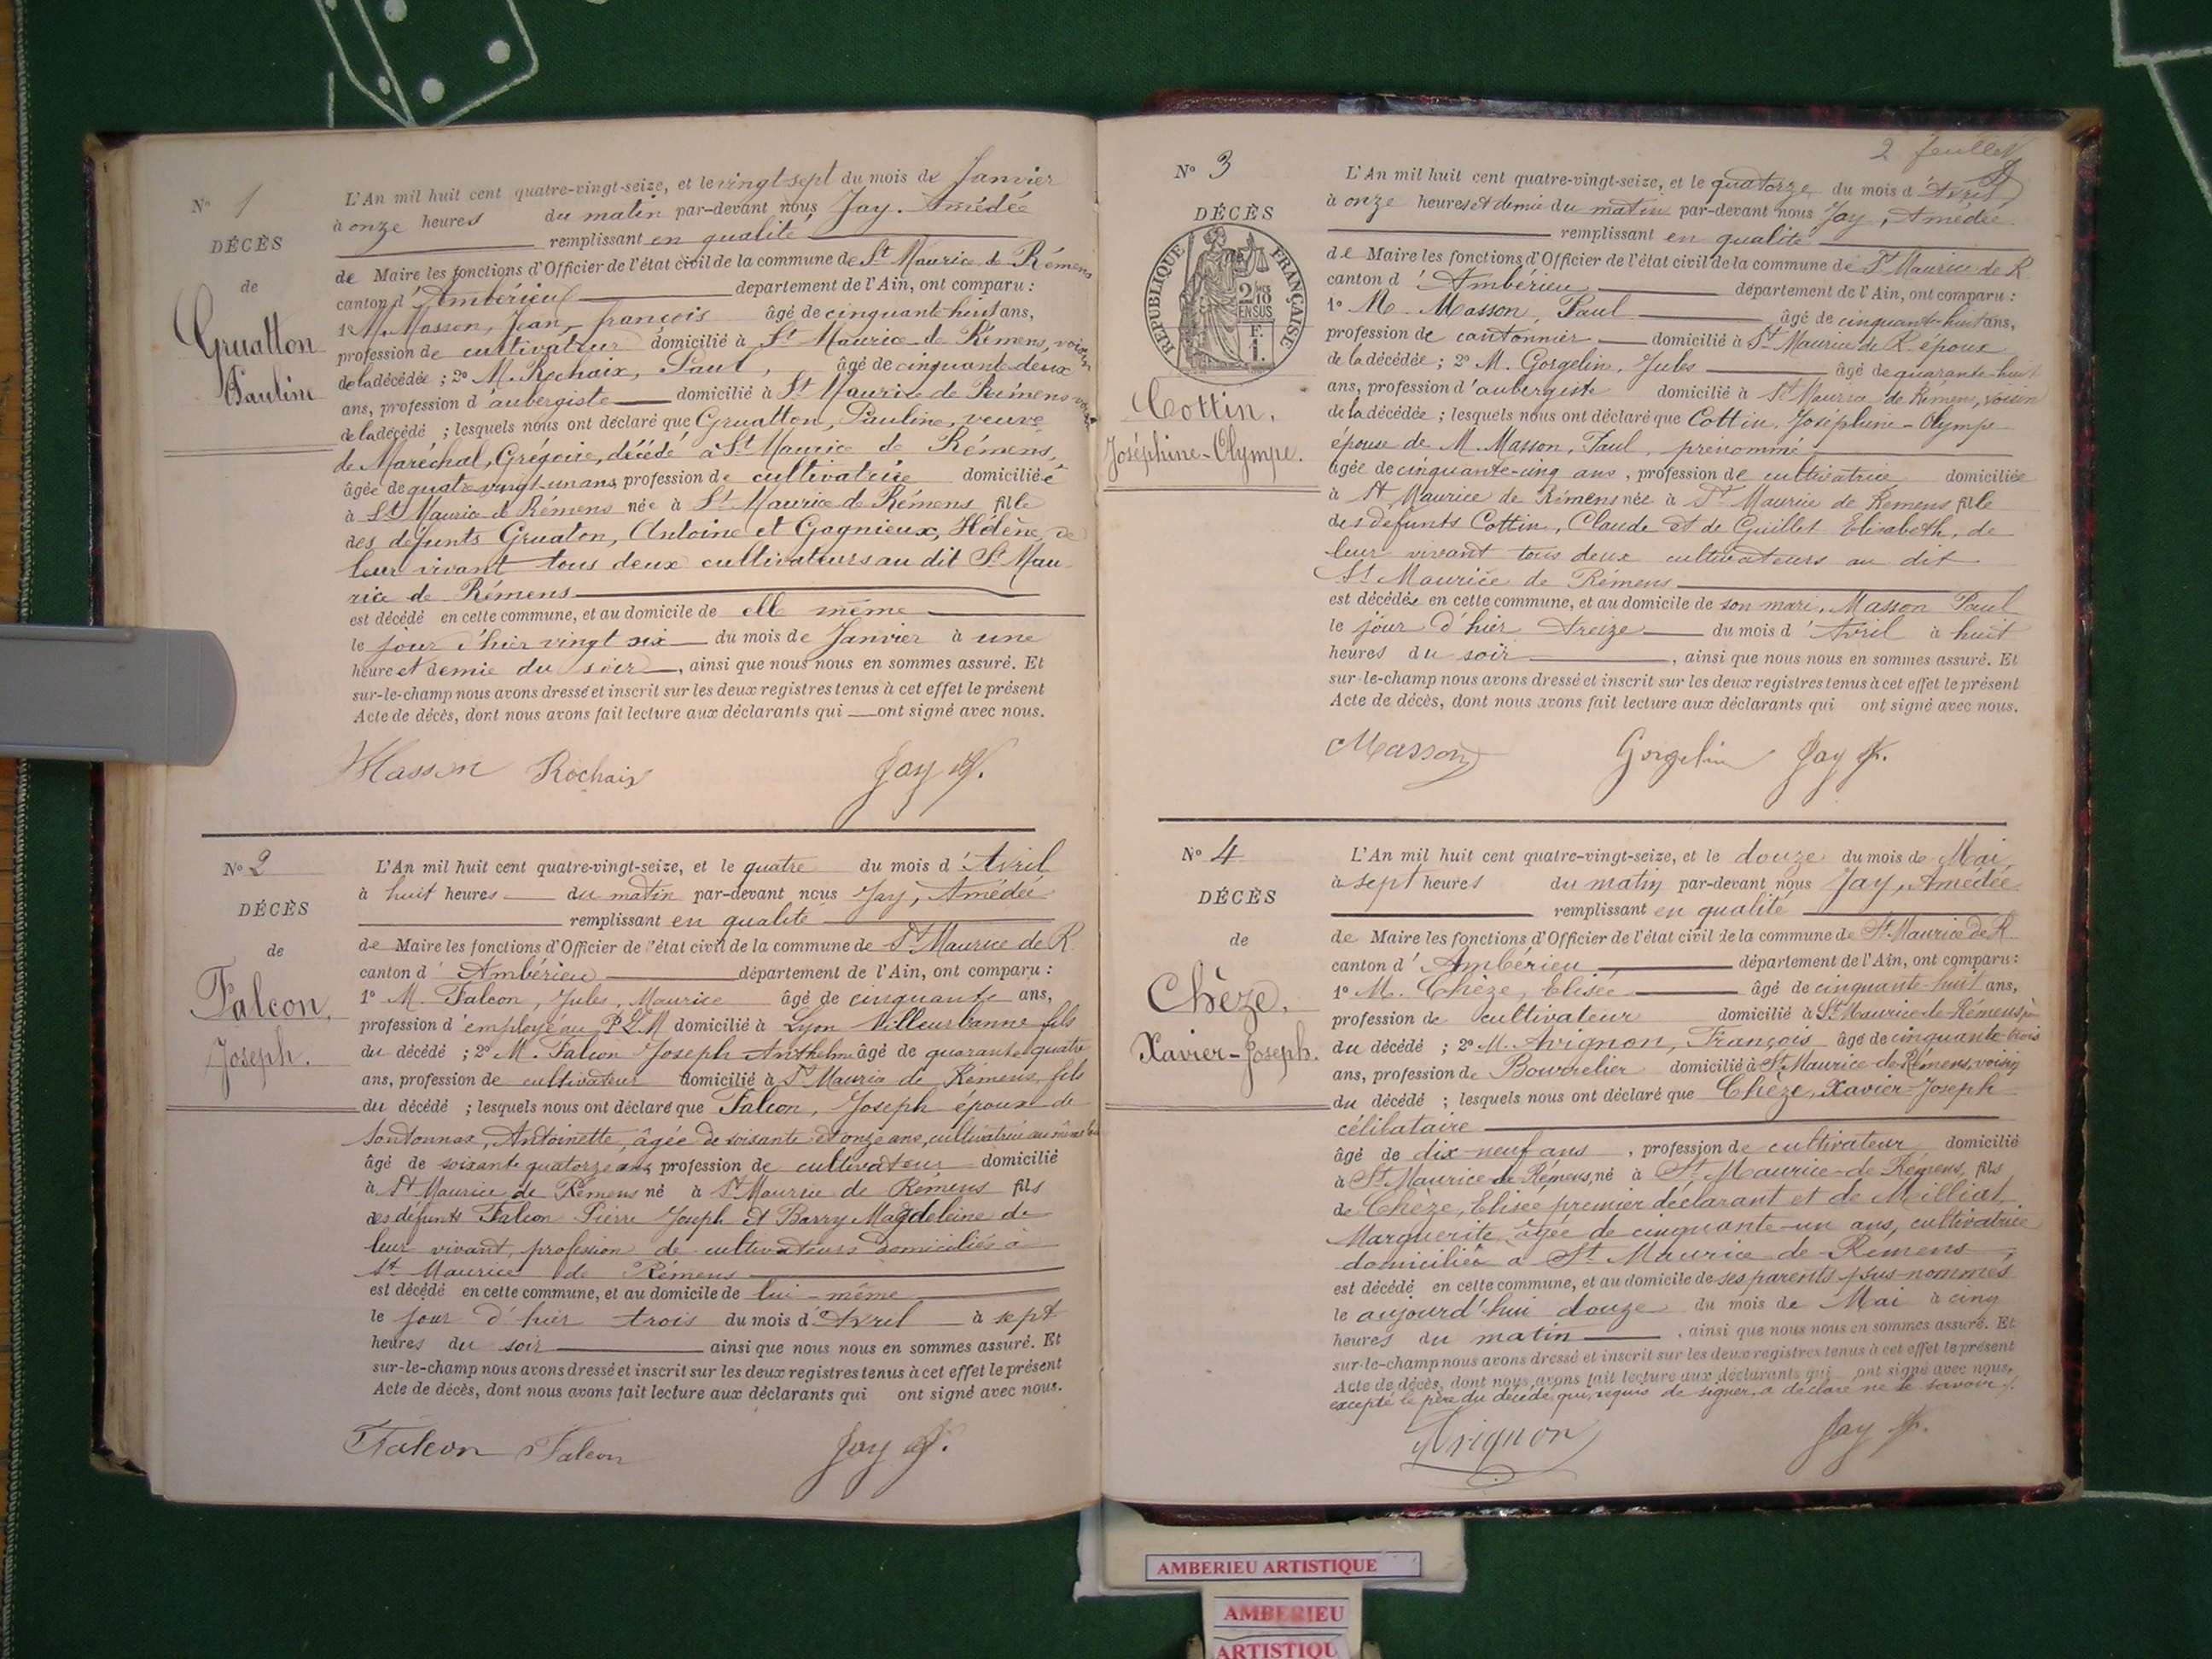 N° 1
DÉCÈS
de
Gruatton
Pauline
L'An mil huit cent quatre-vingt-seize, et le vingt-sept du mois de Janvier
à onze heures du matin par-devant nous Jay, Amédée
remplissant en qualité
de Maire les fonctions d'Officier de l'état civil de la commune de St Maurice de Rémens
canton d'Ambérieu département de l'Ain, ont comparu :
1° M. Masson, Jean, françois âgé de cinquante-huit ans,
profession de cultivateur domicilié à St Maurice de Rémens, voisin
de la décédée ; 2° M. Rochaix, Paul, âgé de cinquante deux
ans, profession d'aubergiste domicilié à St Maurice de Rémens
de la décédé ; lesquels nous ont déclaré que Gruatton, Pauline, veuve
de Maréchal, Grégoire, décédé à St Maurice de Rémens,
âgée de quatre vingt-un ans, profession de cultivatrice domiciliée
à St Maurice de Rémens née à St Maurice de Rémens fille
des défunts Gruaton, Antoine et Gagnieux, Hélène, de
leur vivant tous deux cultivateurs au dit St Mau
rice de Rémens
est décédé en cette commune, et au domicile de elle même
le jour d'hier vingt six du mois de Janvier à une
heure et demie du soir, ainsi que nous nous en sommes assuré. Et
sur-le-champ nous avons dressé et inscrit sur les deux registres tenus à cet effet le présent
Acte de décès, dont nous avons fait lecture aux déclarants qui ont signé avec nous.
Masson Rochaix Jay A.
N° 2
DÉCÈS
de
Falcon,
Joseph.
L'An mil huit cent quatre-vingt-seize, et le quatre du mois d'Avril
à huit heures du matin par-devant nous Jay, Amédée
remplissant en qualité
de Maire les fonctions d'Officier de l'état civil de la commune de St Maurice de R
canton d'Ambérieu département de l'Ain, ont comparu :
1° M. Falcon, Jules, Maurice âgé de cinquante ans,
profession d'employé au P.L.M domicilié à Lyon Villeurbanne fils
du décédé ; 2° M. Falcon Joseph Anthelme âgé de quarante quatre
ans, profession de cultivateur domicilié à St Maurice de Rémens, fils
du décédé ; lesquels nous ont déclaré que Falcon, Joseph époux de
Antoinette, âgée de soixante et onze ans, cultivatrice au même lieu
âgé de soixante quatorze ans, profession de cultivateur domicilié
à St Maurice de Rémens né à St Maurice de Rémens fils
des défunts Falcon Pierre Joseph et Barry Magdeleine de
leur vivant, profession de cultivateurs domiciliés à
St Maurice de Rémens
est décédé en cette commune, et au domicile de lui-même
le jour d'hier trois du mois d'Avril à sept
heures du soir ainsi que nous nous en sommes assuré. Et
sur-le-champ nous avons dressé et inscrit sur les deux registres tenus à cet effet le présent
Acte de décès, dont nous avons fait lecture aux déclarants qui ont signé avec nous.
Falcon Falcon Jay A.
2 feuillet
N° 3
DÉCÈS
RÉPUBLIQUE FRANÇAISE
Cottin,
Joséphine-Olympe.
L'An mil huit cent quatre-vingt-seize, et le quatorze du mois d'Avril
à onze heures et demie du matin par-devant nous Jay, Amédée
remplissant en qualité
de Maire les fonctions d'Officier de l'état civil de la commune de St Maurice de R
canton d'Ambérieu département de l'Ain, ont comparu :
1° M. Masson, Paul âgé de cinquante-huit ans,
profession de cantonnier domicilié à St Maurice de R. époux
de la décédée ; 2° M. Gorgelin, Jules âgé de quarante-huit
ans, profession d'aubergiste domicilié à St Maurice de Rémens, voisin
de la décédée ; lesquels nous ont déclaré que Cottin, Joséphine-Olympe
épouse de M. Masson, Paul, prénommé,
âgée de cinquante-cinq ans, profession de cultivatrice domiciliée
à St Maurice de Rémens née à St Maurice de Rémens fille
des défunts Cottin, Claude et de Guillet Elisabeth, de
leur vivant tous deux cultivateurs au dit
St Maurice de Rémens
est décédée en cette commune, et au domicile de son mari, Masson Paul
le jour d'hier treize du mois d'Avril à huit
heures du soir, ainsi que nous nous en sommes assuré. Et
sur-le-champ nous avons dressé et inscrit sur les deux registres tenus à cet effet le présent
Acte de décès, dont nous avons fait lecture aux déclarants qui ont signé avec nous.
Masson Gorgelin Jay A.
N° 4
DÉCÈS
de
Chèze,
Xavier-Joseph.
L'An mil huit cent quatre-vingt-seize, et le douze du mois de Mai,
à sept heures du matin par-devant nous Jay, Amédée
remplissant en qualité
de Maire les fonctions d'Officier de l'état civil de la commune de St Maurice de R
canton d'Ambérieu département de l'Ain, ont comparu :
1° M. Chèze, Elisée âgé de cinquante-huit ans,
profession de cultivateur domicilié à St Maurice de Rémens père
du décédé ; 2° M. Avignon, François âgé de cinquante-trois
ans, profession de Bourrelier domicilié à St Maurice-de-Rémens, voisin
du décédé ; lesquels nous ont déclaré que Chèze, Xavier-Joseph
célibataire
âgé de dix-neuf ans, profession de cultivateur domicilié
à St Maurice de Rémens, né à St Maurice-de Rémens, fils
de Chèze, Elisée premier déclarant et de Milliat,
Marguerite âgée de cinquante-un ans, cultivatrice
domiciliée à St Maurice de Rémens
est décédé en cette commune, et au domicile de ses parents sus-nommés
le aujourd'hui douze du mois de Mai à cinq
heures du matin, ainsi que nous nous en sommes assuré. Et
sur-le-champ nous avons dressé et inscrit sur les deux registres tenus à cet effet le présent
Acte de décès, dont nous avons fait lecture aux déclarants qui ont signé avec nous,
excepté le père du décédé, qui, requis de signer, a déclaré ne le savoir
Avignon Jay A.
AMBERIEU ARTISTIQUE
AMBERIEU
ARTISTIQU